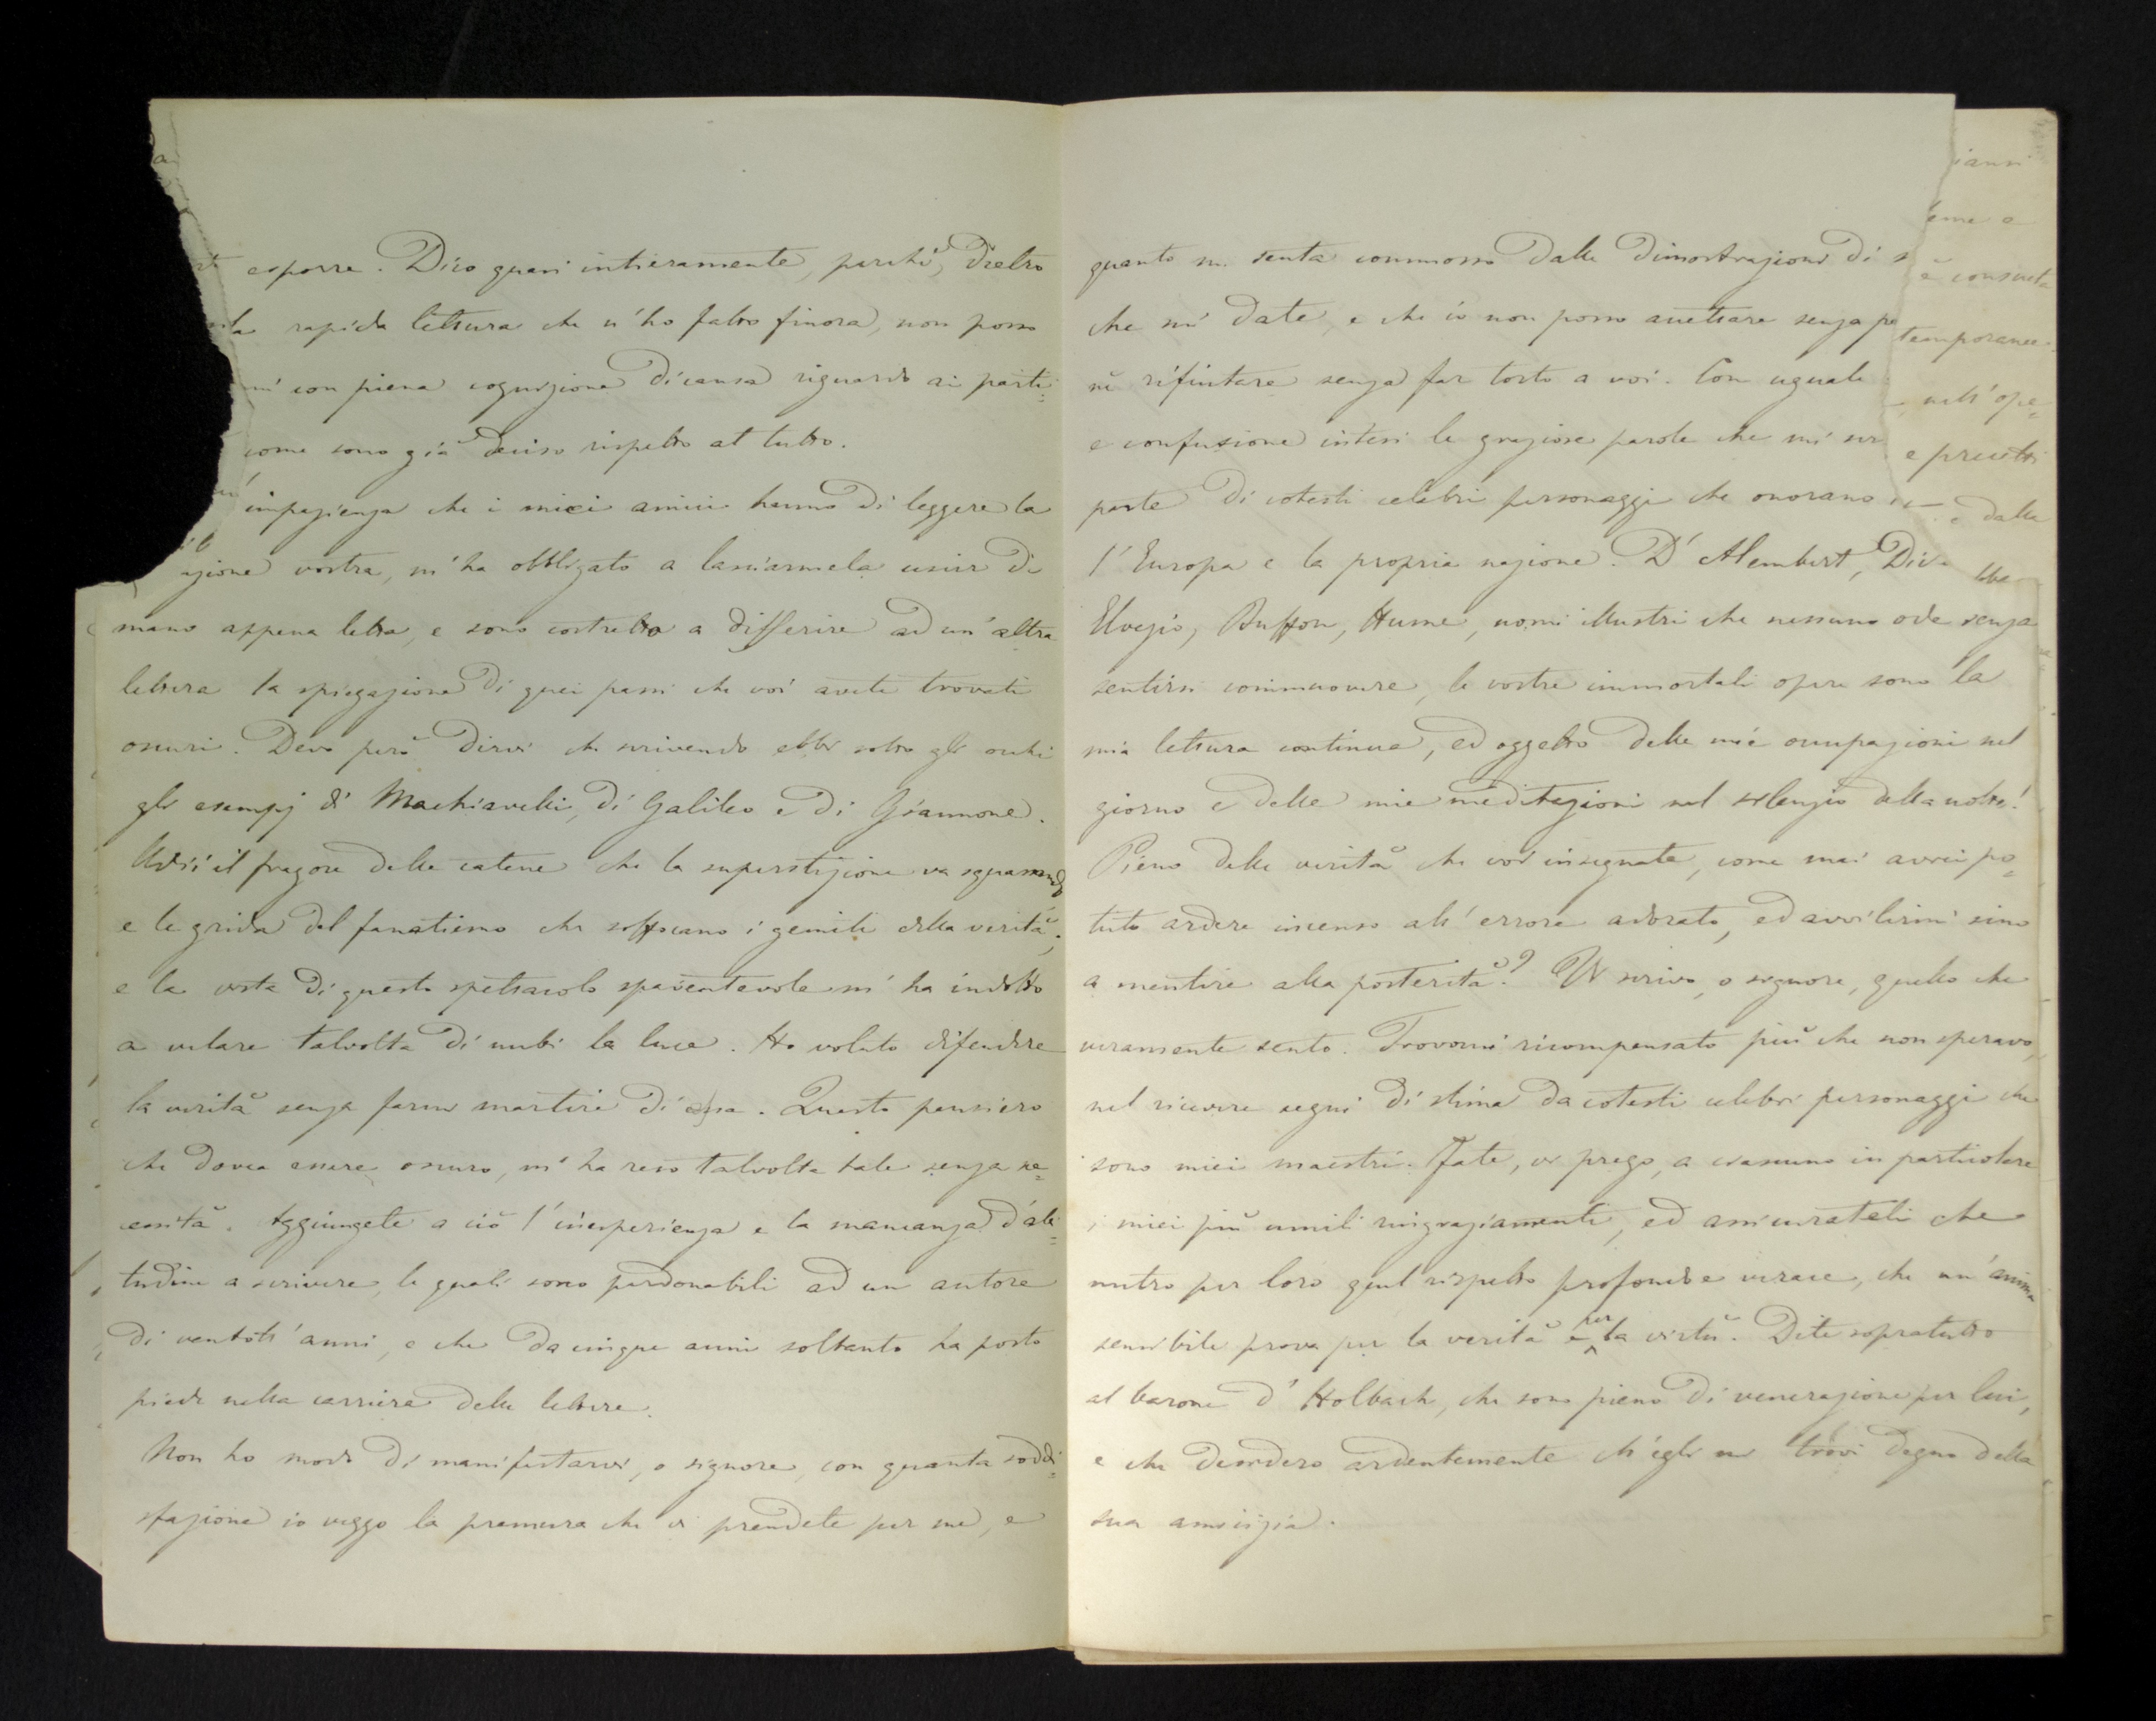 esporre. Dico quasi intieramente, perchè, dietro
rapida lettura che n'ho fatto finora, non posso
con piena cognizione di causa riguardo ai parti=
come sono già deciso rispetto al tutto.
impazienza che i miei amici hanno di leggere la
azione vostra, m'ha obbligato a lasciarmela uscir di
mano appena letta, e sono costretto a differire ad un'altra
lettera la spiegazione di quei passi che voi avete trovati
oscuri. Devo però dirvi che scrivendo ebbi sotto gli occhi
gli esempj di Machiavelli, di Galileo e di Giannone.
Udii il fragore delle catene che la superstizione va squassando
e le grida del fanatismo che soffocano i gemiti della verità;
e la vista di questo spettacolo spaventevole m'ha indotto
a velare talvolta di nubi la luce. Ho voluto difendere
la verità senza farmi martire di essa. Questo pensiero
che dovea essere oscuro, m'ha reso talvolta tale senza ne=
cessità. Aggiungete a ciò l'inesperienza e la mancanza d'abi=
tudine a scrivere, le quali sono perdonabili ad un autore
di ventott'anni, e che da cinque anni soltanto ha posto
piede nella carriera delle lettere.
Non ho modo di manifestarvi, o signore, con quanta soddi=
sfazione io veggo la premura che vi prendete per me, e
quanto mi senta commosso dalle dimostrazioni di
che mi date, e che io non posso accettare senza
nè rifiutare senza far torto a voi. Con uguale
e confusione intesi le graziose parole che mi
parte di cotesti celebri personaggi che onorano
l'Europa e la propria nazione. D'Alembert,
Elvezio, Buffon, Hume, nomi illustri che nessuno ode senza
sentirsi commuovere, le vostre immortali opere sono la
mia lettura continua, ed oggetto delle mie occupazioni nel
giorno e delle mie meditazioni nel silenzio della notte!
Pieno delle verità che voi insegnate, come mai avrei po=
tuto ardere incenso all'errore adorato, ed avvilirmi sino
a mentire alla posterità? Vi scrivo, o signore, quello che
veramente sento. Trovomi ricompensato più che non sperava,
nel ricevere segni di stima da cotesti celebri personaggi che
sono miei maestri. Fate, vi prego, a ciascuno in particolare
i miei più umili ringraziamenti, ed assicurateli che
nutro per loro quel rispetto profondo e verace, che un'anima
sensibile prova per la verità e per la virtù. Dite sopratutto
al barone d'Holbach, che sono pieno di venerazione per lui,
e che desidero ardentemente ch'egli mi trovi degno della
sua amicizia.
ianni
eme e
è consueta
temporanee
nell'ope=
e precetti
dalle